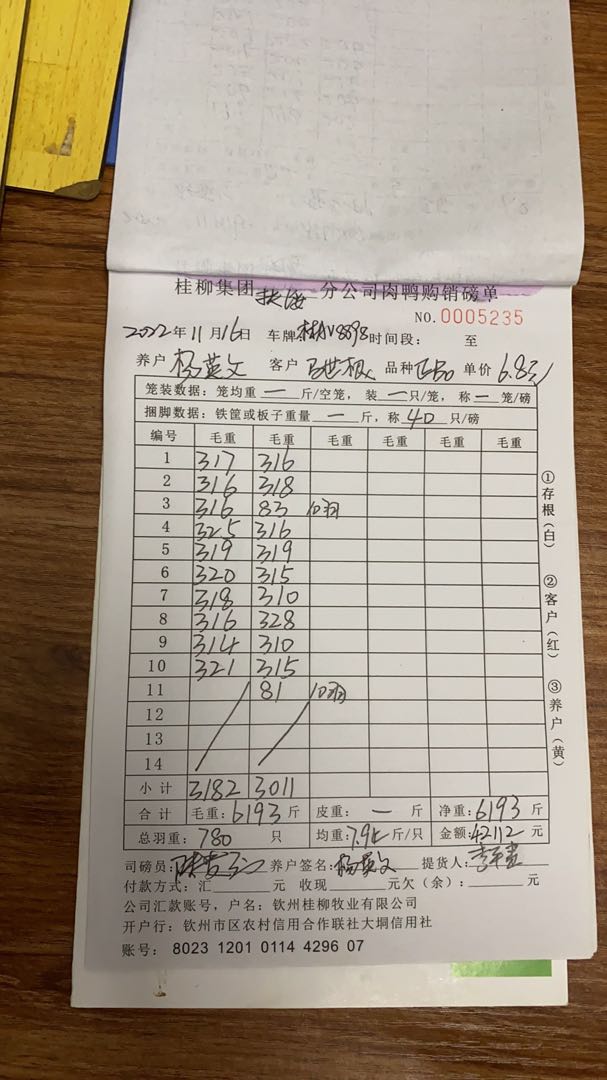 桂柳集团 分公司肉鸭购销磅单
NO.0005235
2022年11月16日 车牌 时间段: 至
养户 杨英文 客户 品种 单价 6.8
笼装数据: 笼均重 一 斤/空笼, 装 一 只/笼, 称 一 笼/磅
捆脚数据: 铁筐或板子重量 一 斤, 称 40 只/磅
编号 毛重 毛重 毛重 毛重 毛重 毛重
1 317 316
2 316 318
3 316 83 10羽
4 325 316
5 319 319
6 320 315
7 318 310
8 316 328
9 314 310
10 321 315
11 81 10羽
12
13
14
小计 3182 3011
合计 毛重: 6193 斤 皮重: 一 斤 净重: 6193 斤
总羽重: 780 只 均重: 7.94 斤/只 金额: 42112 元
司磅员: 养户签名: 杨英文 提货人:
付款方式: 汇 元 收现 元欠(余): 元
公司汇款账号, 户名: 钦州桂柳牧业有限公司
开户行: 钦州市区农村信用合作联社大垌信用社
账号: 8023 1201 0114 4296 07
①存根(白)
②客户(红)
③养户(黄)